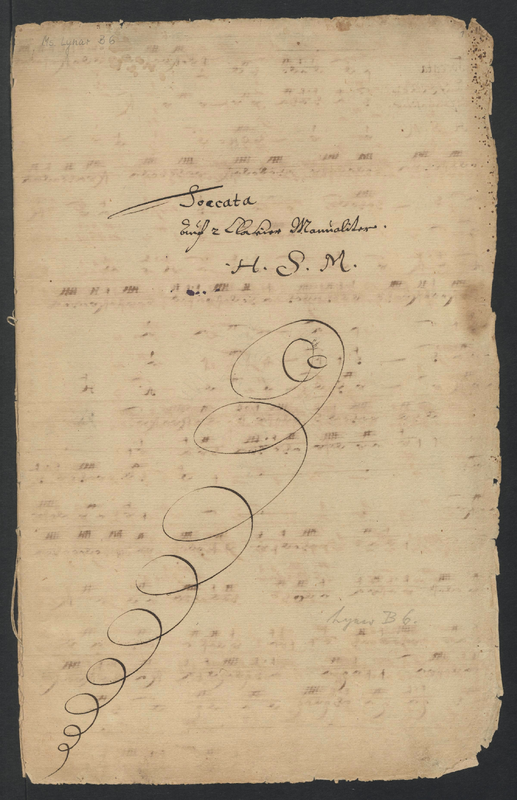 Ms Lynar B 6
Toccata
auff 2 Clavier Manualiter.
H. S. M.
Lynar B 6.